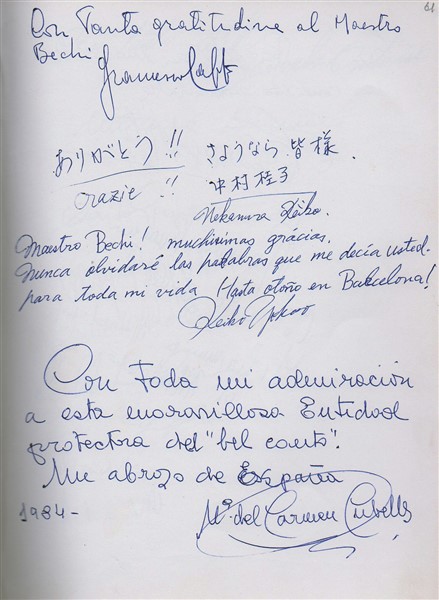 61
Con Tanta gratitudine al Maestro
Bechi
ありがとう!! さようなら 皆様.
Grazie !! 中村桂子
Nakamura Keiko.
Maestro Bechi! muchísimas grácias.
Nunca olvidaré las palabras que me decía usted.
para toda mi vida Hasta otoño en Barcelona!
Keiko
Con toda mi admiración
a esta maravillosa Entidad
protectora del "bel canto".
Un abrazo de España
1984- Mª del Carmen Cubells